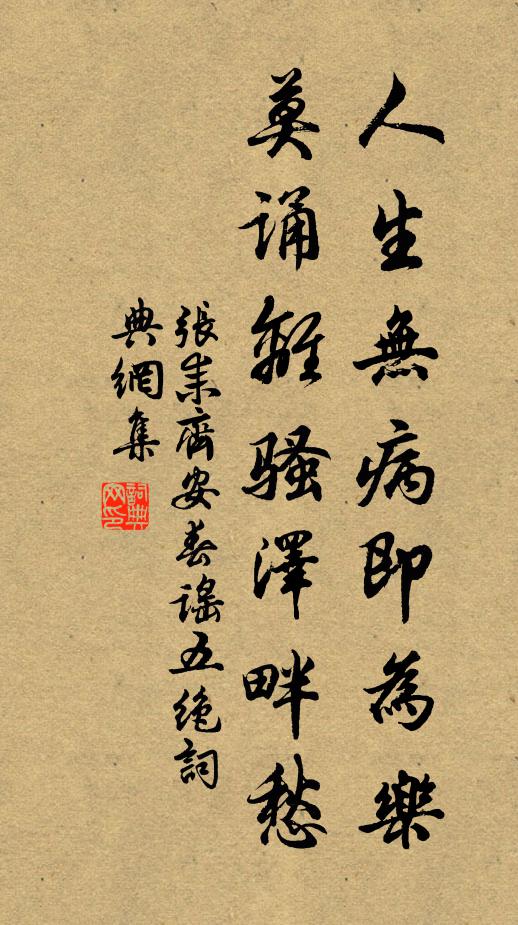 人生無病即為樂
莫誦離騷澤畔愁
張耒齊安春謠五絕詞
典網集
詞典
网印